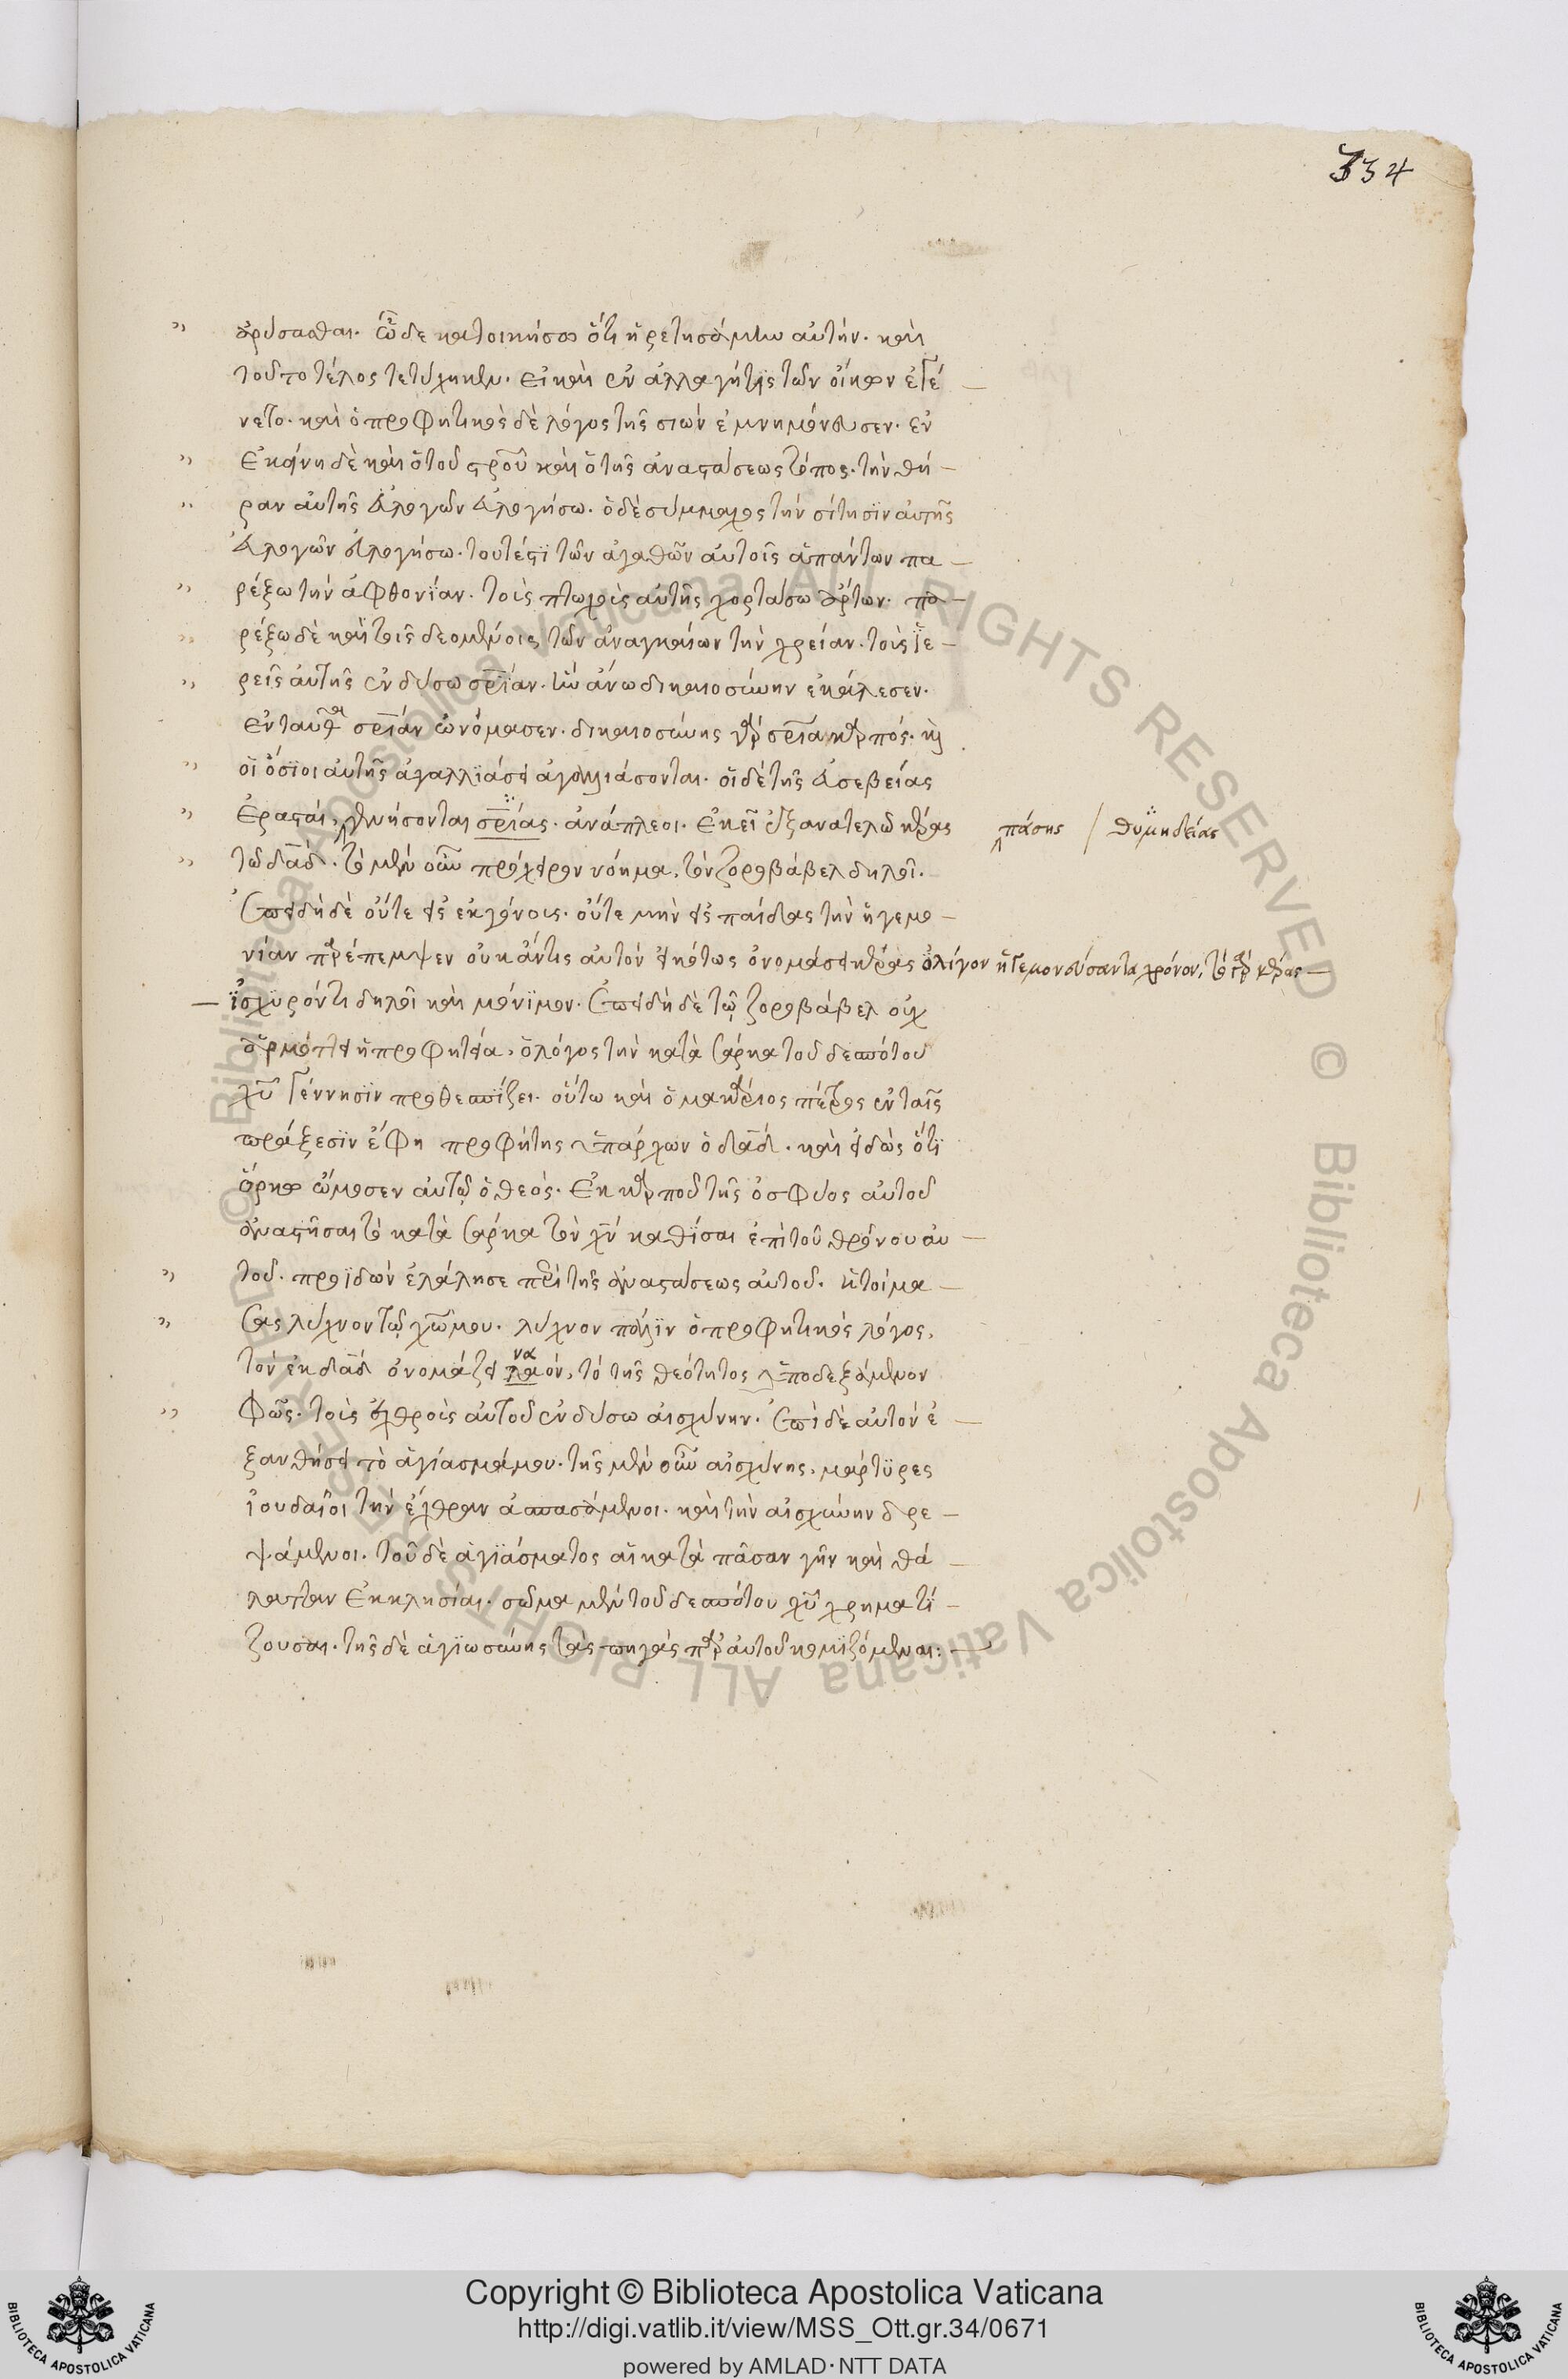 334
ἀρύσασθαι. ὧδε κατοικήσω ὅτι ᾑρετησάμην αὐτήν. καὶ
τοῦτο τέλος τετύχηκεν. εἰ καὶ ἐναλλαγή τις τῶν οἴκων ἐγέ –
νετο. καὶ ὁ προφητικὸς δὲ λόγος τῆς σιὼν ἐμνημόνευσεν. ἐν
ἐκείνῃ δὲ καὶ ὁ τοῦ σταυροῦ καὶ ὁ τῆς ἀναστάσεως τόπος. τὴν θή –
ραν αὐτῆς εὐλογῶν εὐλογήσω. ὁ δὲ σύμμαχος τὴν σίτησϊν αὐτῆς
εὐλογῶν εὐλογήσω. τουτέστϊ τῶν ἀγαθῶν αὐτοῖς ἁπάντων πα –
ρέξω τὴν ἀφθονΐαν. τοὺς πτωχοὺς αὐτῆς χορτάσω ἄρτων. πα –
ρέξω δὲ καὶ τοῖς δεομένοις τῶν ἀναγκαίων τὴν χρείαν. τοὺς ἱε –
ρεῖς αὐτῆς ἐνδύσω σρΐαν. ἣν ἄνω δικαιοσύνην ἐκάλεσεν.
ἐνταῦθα σριάν ὠνόμασεν. δικαιοσύνης γὰρ σρία καρπός. καὶ
οἱ ὅσϊοι αὐτῆς ἀγαλλϊάσει ἀγαλλιάσονται. οἱ δὲ τῆς εὐσεβείας
ἐρασταὶ, γενήσονται σρίας. ἀνάπλεοι. ἐκεῖ ἐξανατελῶ κέρας πάσης / θυμηδείας
τῷ δαδ. τὸ μὲν οὖν πρόχειρον νόημα, τὸν ζοροβάβελ δηλοῖ.
ἐπειδὴ δὲ οὔτε εἰς ἐκγόνους. οὔτε μὴν εἰς παῖδας τὴν ἡγεμο –
νίαν παρέπεμψεν οὐκ ἄν τις αὐτὸν εἰκότως ὀνομάσει κέρας ὀλίγον ἡγεμονεύσαντα χρόνον, τὸ γὰρ κέρας –
– ἰσχϋρόν τι δηλοῖ καὶ μόνϊμον. ἐπειδὴ δὲ τῷ ζοροβάβελ οὐχ
ἁρμόττει ἡ προφητεία, ὁ λόγος τὴν κατὰ σάρκα τοῦ δεσπότου
χυ γέννησϊν προθεσπίζει. οὕτω καὶ ὁ μακάριος πέτρος ἐν ταῖς
πράξεσϊν ἔφη προφήτης ὑπάρχων ὁ δαδ. καὶ εἰδὼς ὅτϊ
ὅρκῳ ὤμοσεν αὐτῷ ὁ θεός. ἐκ καρποῦ τῆς ὀσφύος αὐτοῦ
ἀναστῆσαι τὸ κατὰ σάρκα τὸν χν καθΐσαι ἐπὶ τοῦ θρόνου αὐ –
τοῦ. προϊδὼν ἐλάλησε περὶ τῆς ἀναστάσεως αὐτοῦ. ἡτοίμα –
σας λύχνον τῷ χω μου. λύχνον πάλϊν ὁ προφητικὸς λόγος,
τὸν ἐκ δαδ ὀνομάζει λαόν, να τὸ τῆς θεότητος ὑποδεξάμενον
φῶς. τοὺς ἐχθροὺς αὐτοῦ ἐνδύσω αἰσχύνην. ἐπὶ δὲ αὐτὸν ἐ –
ξανθήσει τὸ ἁγίασμά μου. τῆς μὲν οὖν αἰσχύνης, μάρτϋρες
ἰουδαῖοι τὴν ἔχθραν ἀσπασάμενοι. καὶ τὴν αἰσχύνην δρε –
ψάμενοι. τοῦ δὲ ἁγϊάσματος αἱ κατὰ πᾶσαν γῆν καὶ θά –
λατταν ἐκκλησίαι. σῶμα μὲν τοῦ δεσπότου χυ χρηματΐ –
ζουσαι. τῆς δὲ ἁγϊωσύνης τὰς πηγὰς παρ αὐτοῦ κομϊζόμεναι: –
Copyright © Biblioteca Apostolica Vaticana
http://digi.vatlib.it/view/MSS_Ott.gr.34/0671
powered by AMLAD·NTT DATA